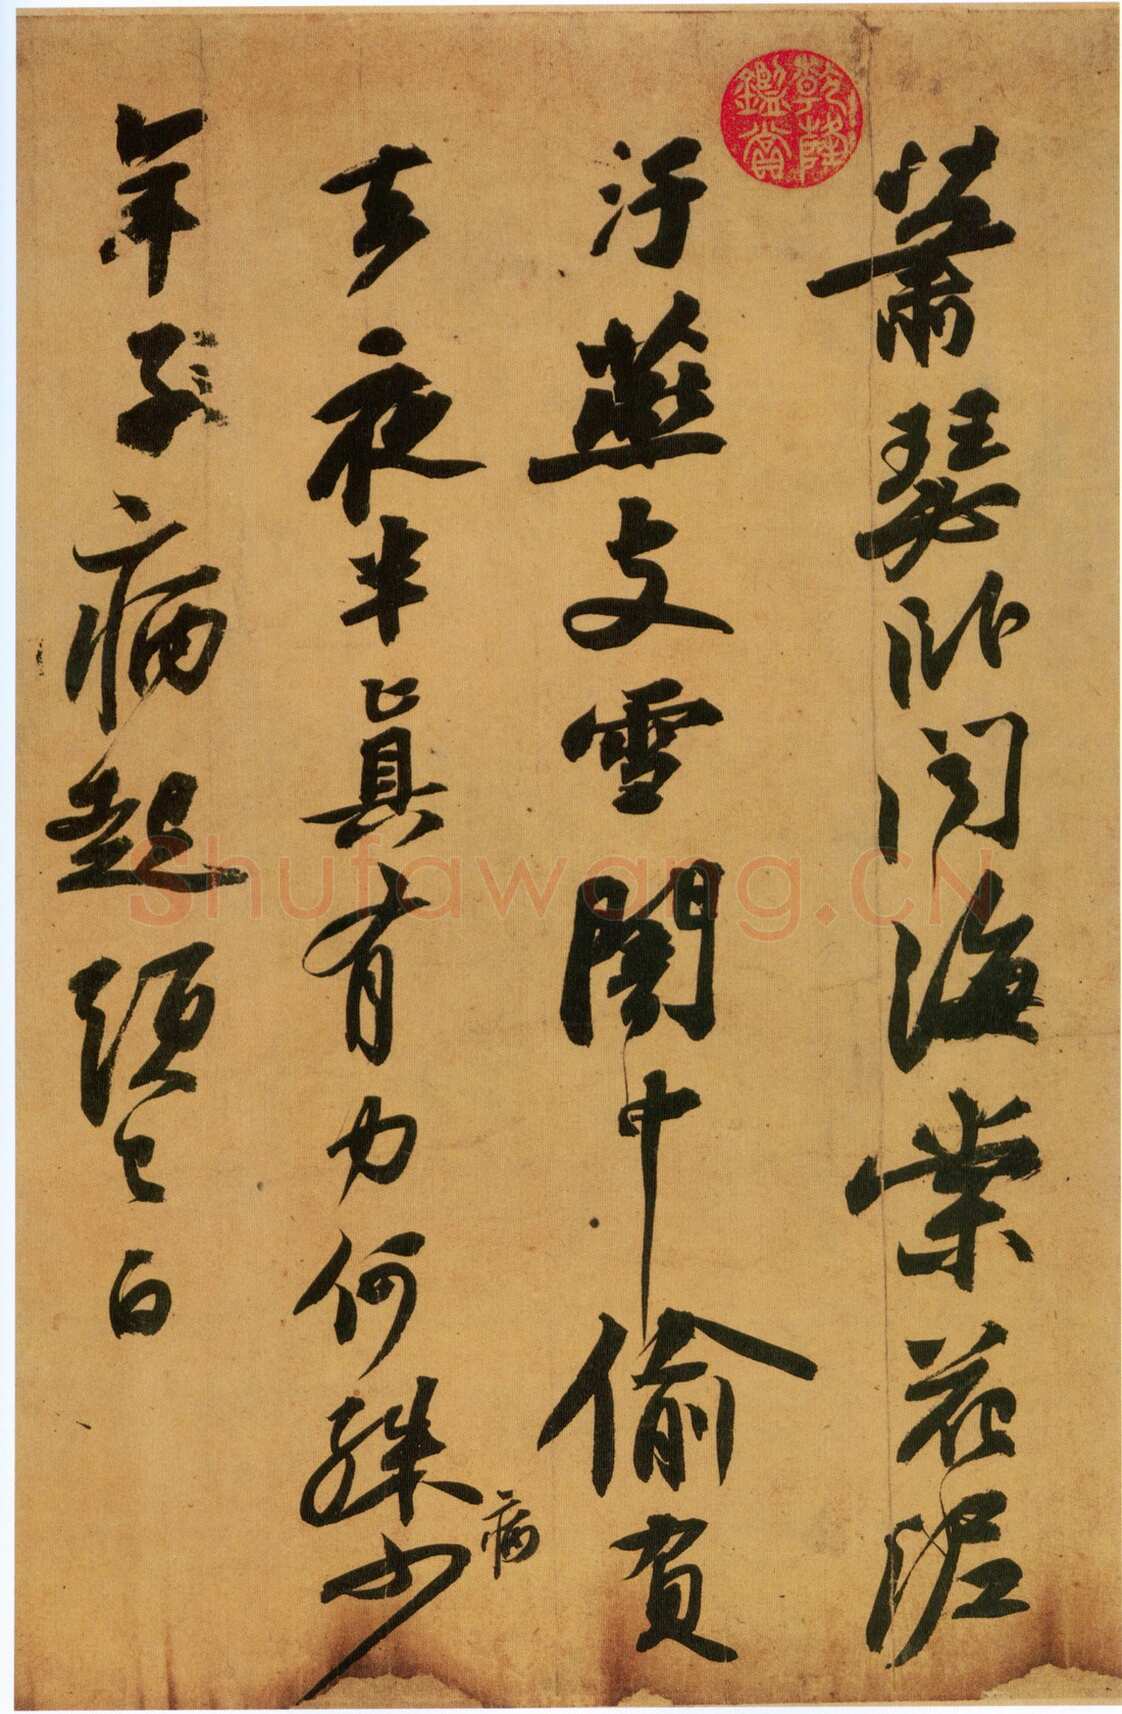 蕭瑟卧闻海棠花泥
汙燕支雪闇中偷負
去夜半真有力何殊少
病
年子病起須已白
乾隆
鑑賞
Shufawang.CN